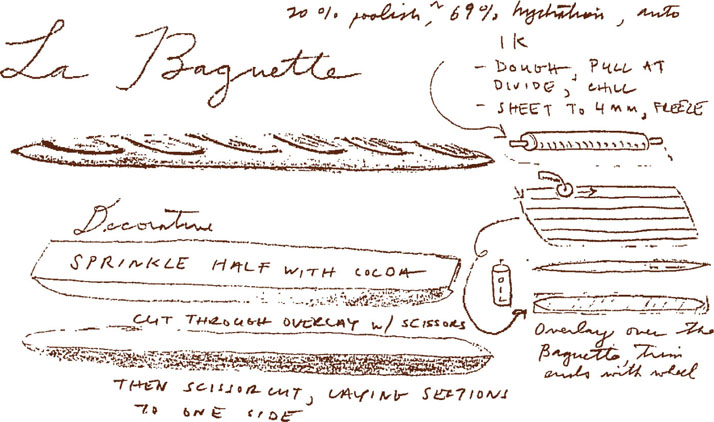 20% poolish, ~ 69% hydration, auto
La Baguette
1K
- DOUGH, PULL AT
DIVIDE, CHILL
- SHEET TO 4MM, FREEZE
Decorative
SPRINKLE HALF WITH COCOA
CUT THROUGH OVERLAY W/ SCISSORS
THEN SCISSOR CUT, LAYING SECTIONS
TO ONE SIDE
OIL
Overlay over the
Baguette, Trim
ends with wheel